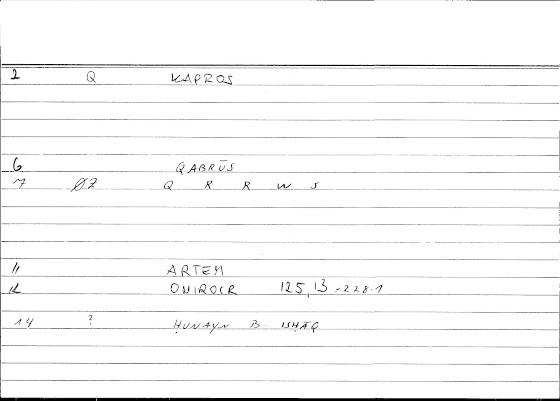 2 Q KAPROS
6 QABRŪS
7 ØZ Q R R W S
11 ARTEM
12 ONIROCR 125,13 = 228.1
14 ? ḤUNAYN B. ISḤĀQ